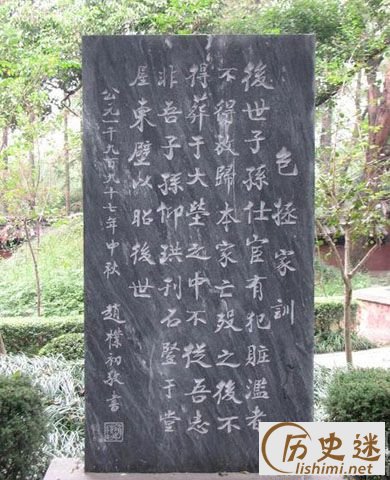 包拯家訓
後世子孫仕宦有犯賍濫者
不得放歸本家亡歿之後不
得葬于大塋之中不從吾志
非吾子孫仰珙刊石豎于堂
屋東壁以昭後世
公元一千九百九十七年中秋 趙樸初敬書
历史迷
lishimi.net